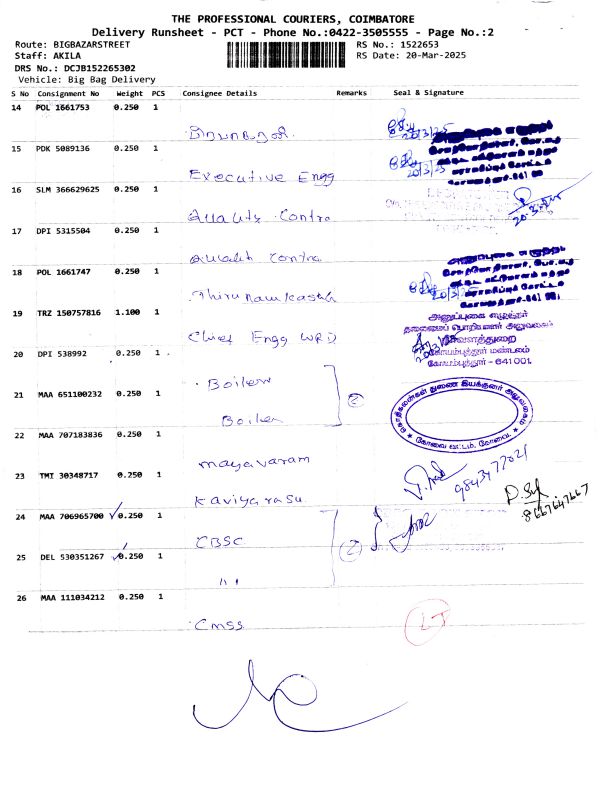 THE PROFESSIONAL COURIERS, COIMBATORE
Delivery Runsheet - PCT - Phone No.:0422-3505555 - Page No.:2
Route: BIGBAZARSTREET
RS No.: 1522653
Staff: AKILA
RS Date: 20-Mar-2025
DRS No.: DCJB152265302
Vehicle: Big Bag Delivery
S No Consignment No Weight PCS Consignee Details Remarks Seal & Signature
14 POL 1661753 0.250 1
20/3/25
15 PDK 5089136 0.250 1
Executive Engg
20/3/25
16 SLM 366629625 0.250 1
Quality Contro
17 DPI 5315504 0.250 1
Contro
18 POL 1661747 0.250 1
20/3/25
19 TRZ 150757816 1.100 1
Chief Engg WRD
அனுப்புகை எழுத்தர்
தலைமைப் பொறியாளர் அலுவலகம்
நீர்வளத்துறை
கோயம்புத்தூர் மண்டலம்
கோயம்புத்தூர் - 641 001.
20 DPI 538992 0.250 1
Boiler
21 MAA 651100232 0.250 1
Boiler
2
கொதிகலன்கள் துணை இயக்குனர் அலுவலகம்
கோவை வட்டம், கோவை.
22 MAA 707183836 0.250 1
mayavaram
9843477021
23 TMI 30348717 0.250 1
Kaviyarasu
8667647667
24 MAA 706965700 0.250 1
CBSC
2
25 DEL 530351267 0.250 1
"
26 MAA 111034212 0.250 1
CMSS
LT